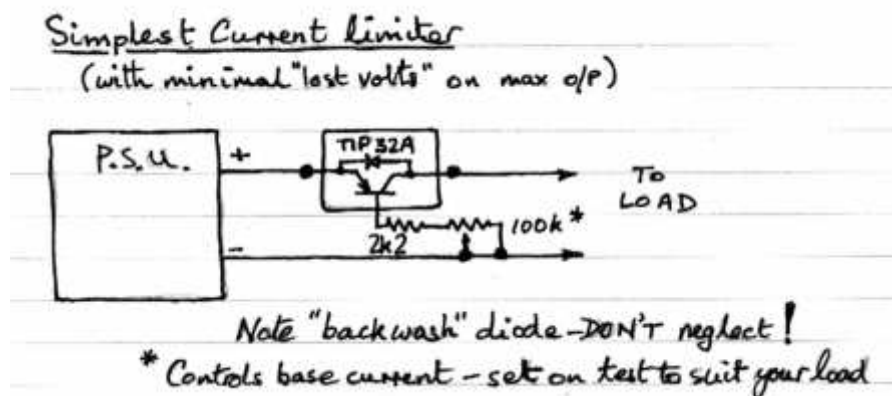 Simplest Current limiter
(with minimal "lost volts" on max o/p)
P.S.U.
+
TIP 32A
TO
LOAD
100k *
2k2
-
Note "backwash" diode - DON'T neglect!
* Controls base current - set on test to suit your load